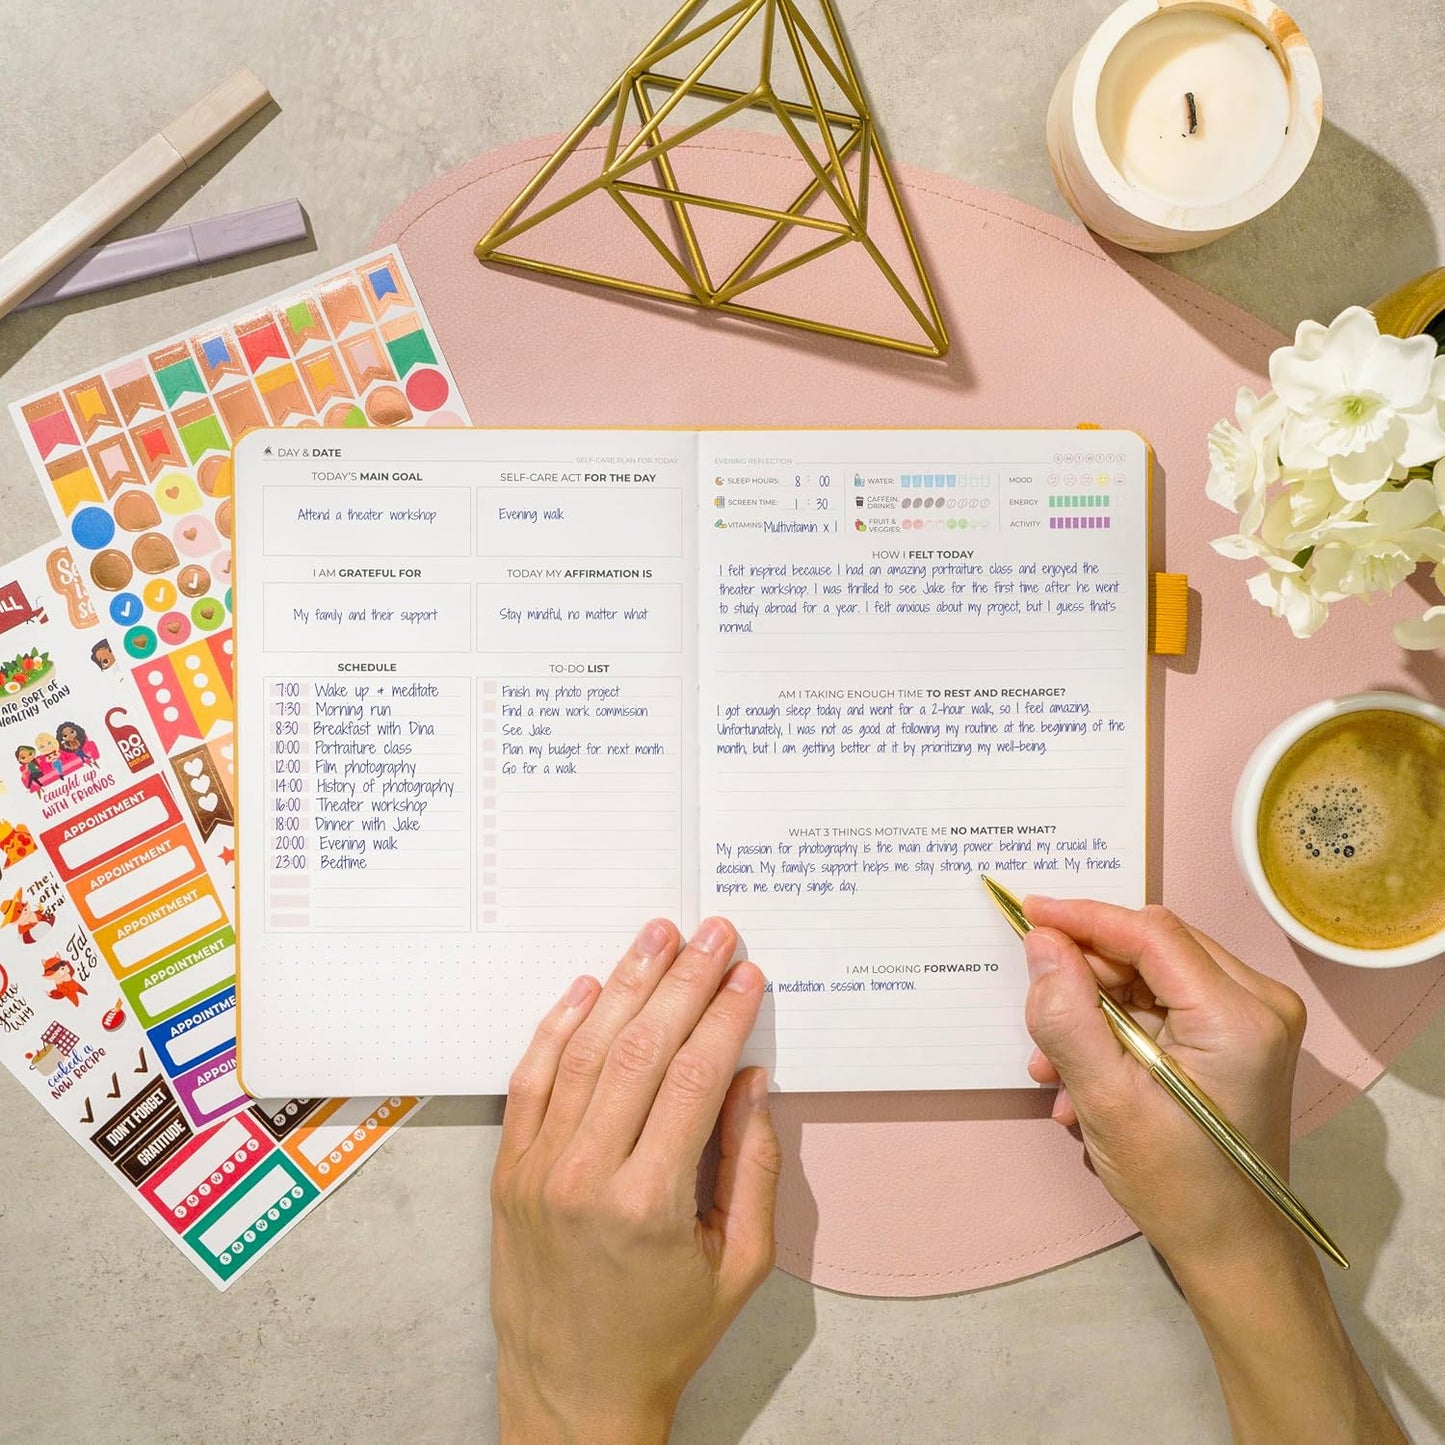 DAY & DATE
SELF-CARE PLAN FOR TODAY
TODAY'S MAIN GOAL
Attend a theater workshop
SELF-CARE ACT FOR THE DAY
Evening walk
I AM GRATEFUL FOR
My family and their support
TODAY MY AFFIRMATION IS
Stay mindful, no matter what
SCHEDULE
7:00 Wake up & meditate
7:30 Morning run
8:30 Breakfast with Dina
10:00 Portraiture class
12:00 Film photography
14:00 History of photography
16:00 Theater workshop
18:00 Dinner with Jake
20:00 Evening walk
23:00 Bedtime
TO-DO LIST
Finish my photo project
Find a new work commission
See Jake
Plan my budget for next month
Go for a walk
EVENING REFLECTION
S M T W T F S
SLEEP HOURS: 8 : 00
SCREEN TIME: 1 : 30
VITAMINS: Multivitamin x 1
WATER:
CAFFEIN.
DRINKS:
FRUIT &
VEGGIES:
MOOD
ENERGY
ACTIVITY
HOW I FELT TODAY
I felt inspired because I had an amazing portraiture class and enjoyed the
theater workshop. I was thrilled to see Jake for the first time after he went
to study abroad for a year. I felt anxious about my project, but I guess that's
normal.
AM I TAKING ENOUGH TIME TO REST AND RECHARGE?
I got enough sleep today and went for a 2-hour walk, so I feel amazing.
Unfortunately, I was not as good at following my routine at the beginning of the
month, but I am getting better at it by prioritizing my well-being.
WHAT 3 THINGS MOTIVATE ME NO MATTER WHAT?
My passion for photography is the main driving power behind my crucial life
decision. My family's support helps me stay strong, no matter what. My friends
inspire me every single day.
I AM LOOKING FORWARD TO
meditation session tomorrow.
ATE SORT OF
HEALTHY TODAY
DO
NOT
caught up
WITH FRIENDS
APPOINTMENT
APPOINTMENT
APPOINTMENT
APPOINTMENT
APPOINTMENT
cooked a
NEW RECIPE
DON'T FORGET
GRATITUDE
S M T W T F S
S M T W T F S
S M T W T F S